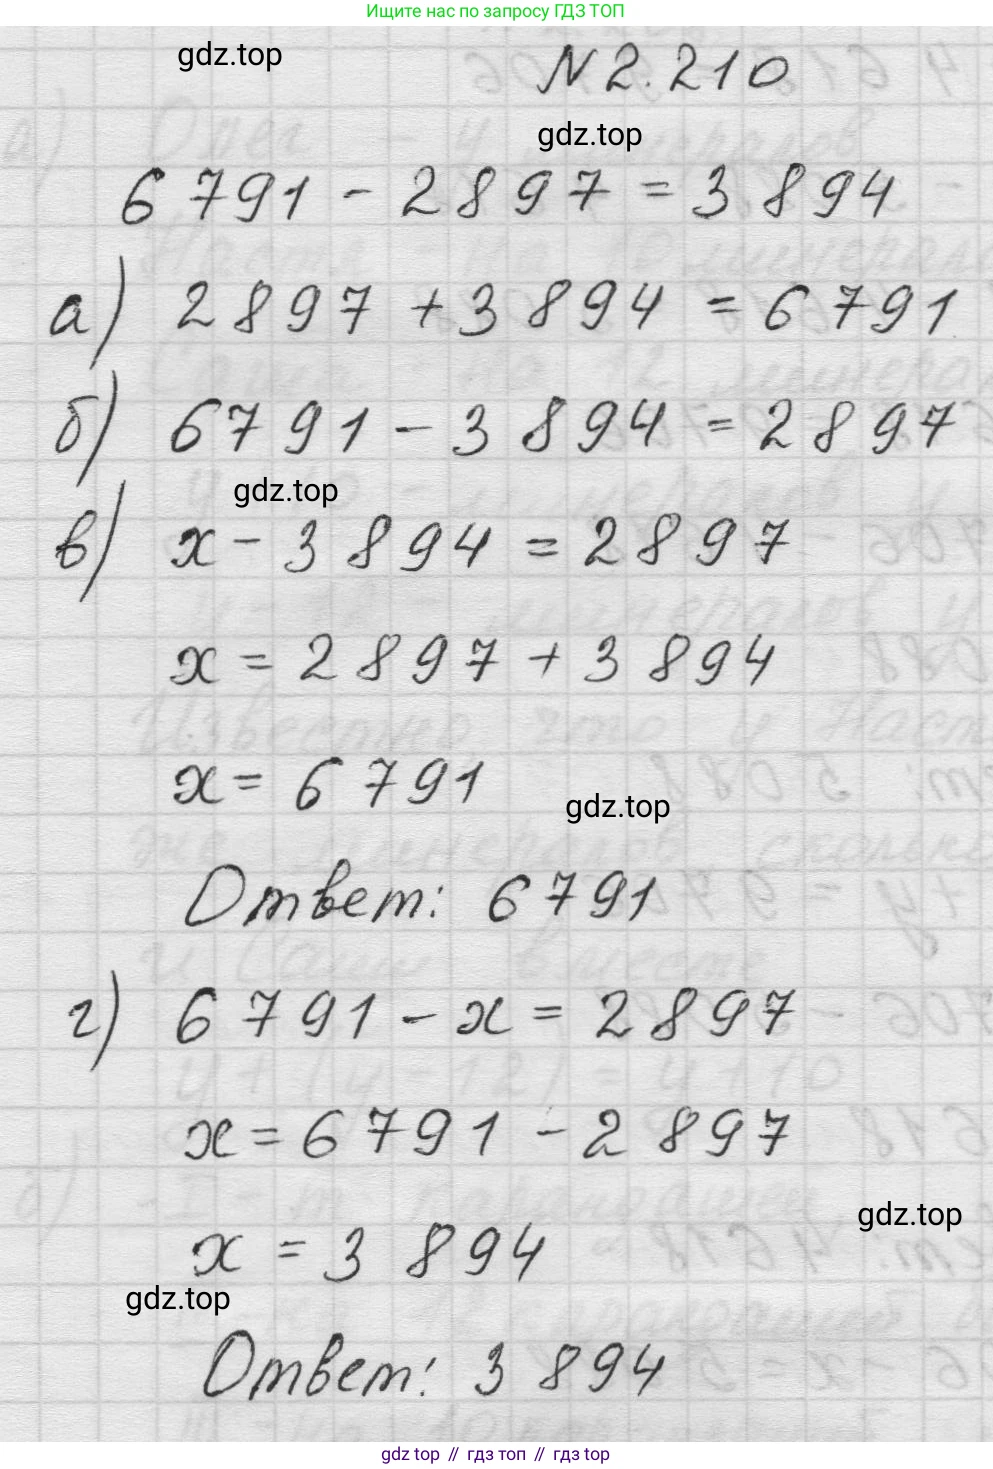 Ищите нас по запросу ГДЗ ТОП
gdz.top
N 2.210
gdz.top
6 791 - 2 897 = 3 894
а) 2 897 + 3 894 = 6 791
б) 6 791 - 3 894 = 2 897
gdz.top
в) x - 3 894 = 2 897
x = 2 897 + 3 894
x = 6 791
gdz.top
Ответ: 6 791
г) 6 791 - x = 2 897
x = 6 791 - 2 897
gdz.top
x = 3 894
gdz.top
Ответ: 3 894
gdz top // гдз топ // gdz top